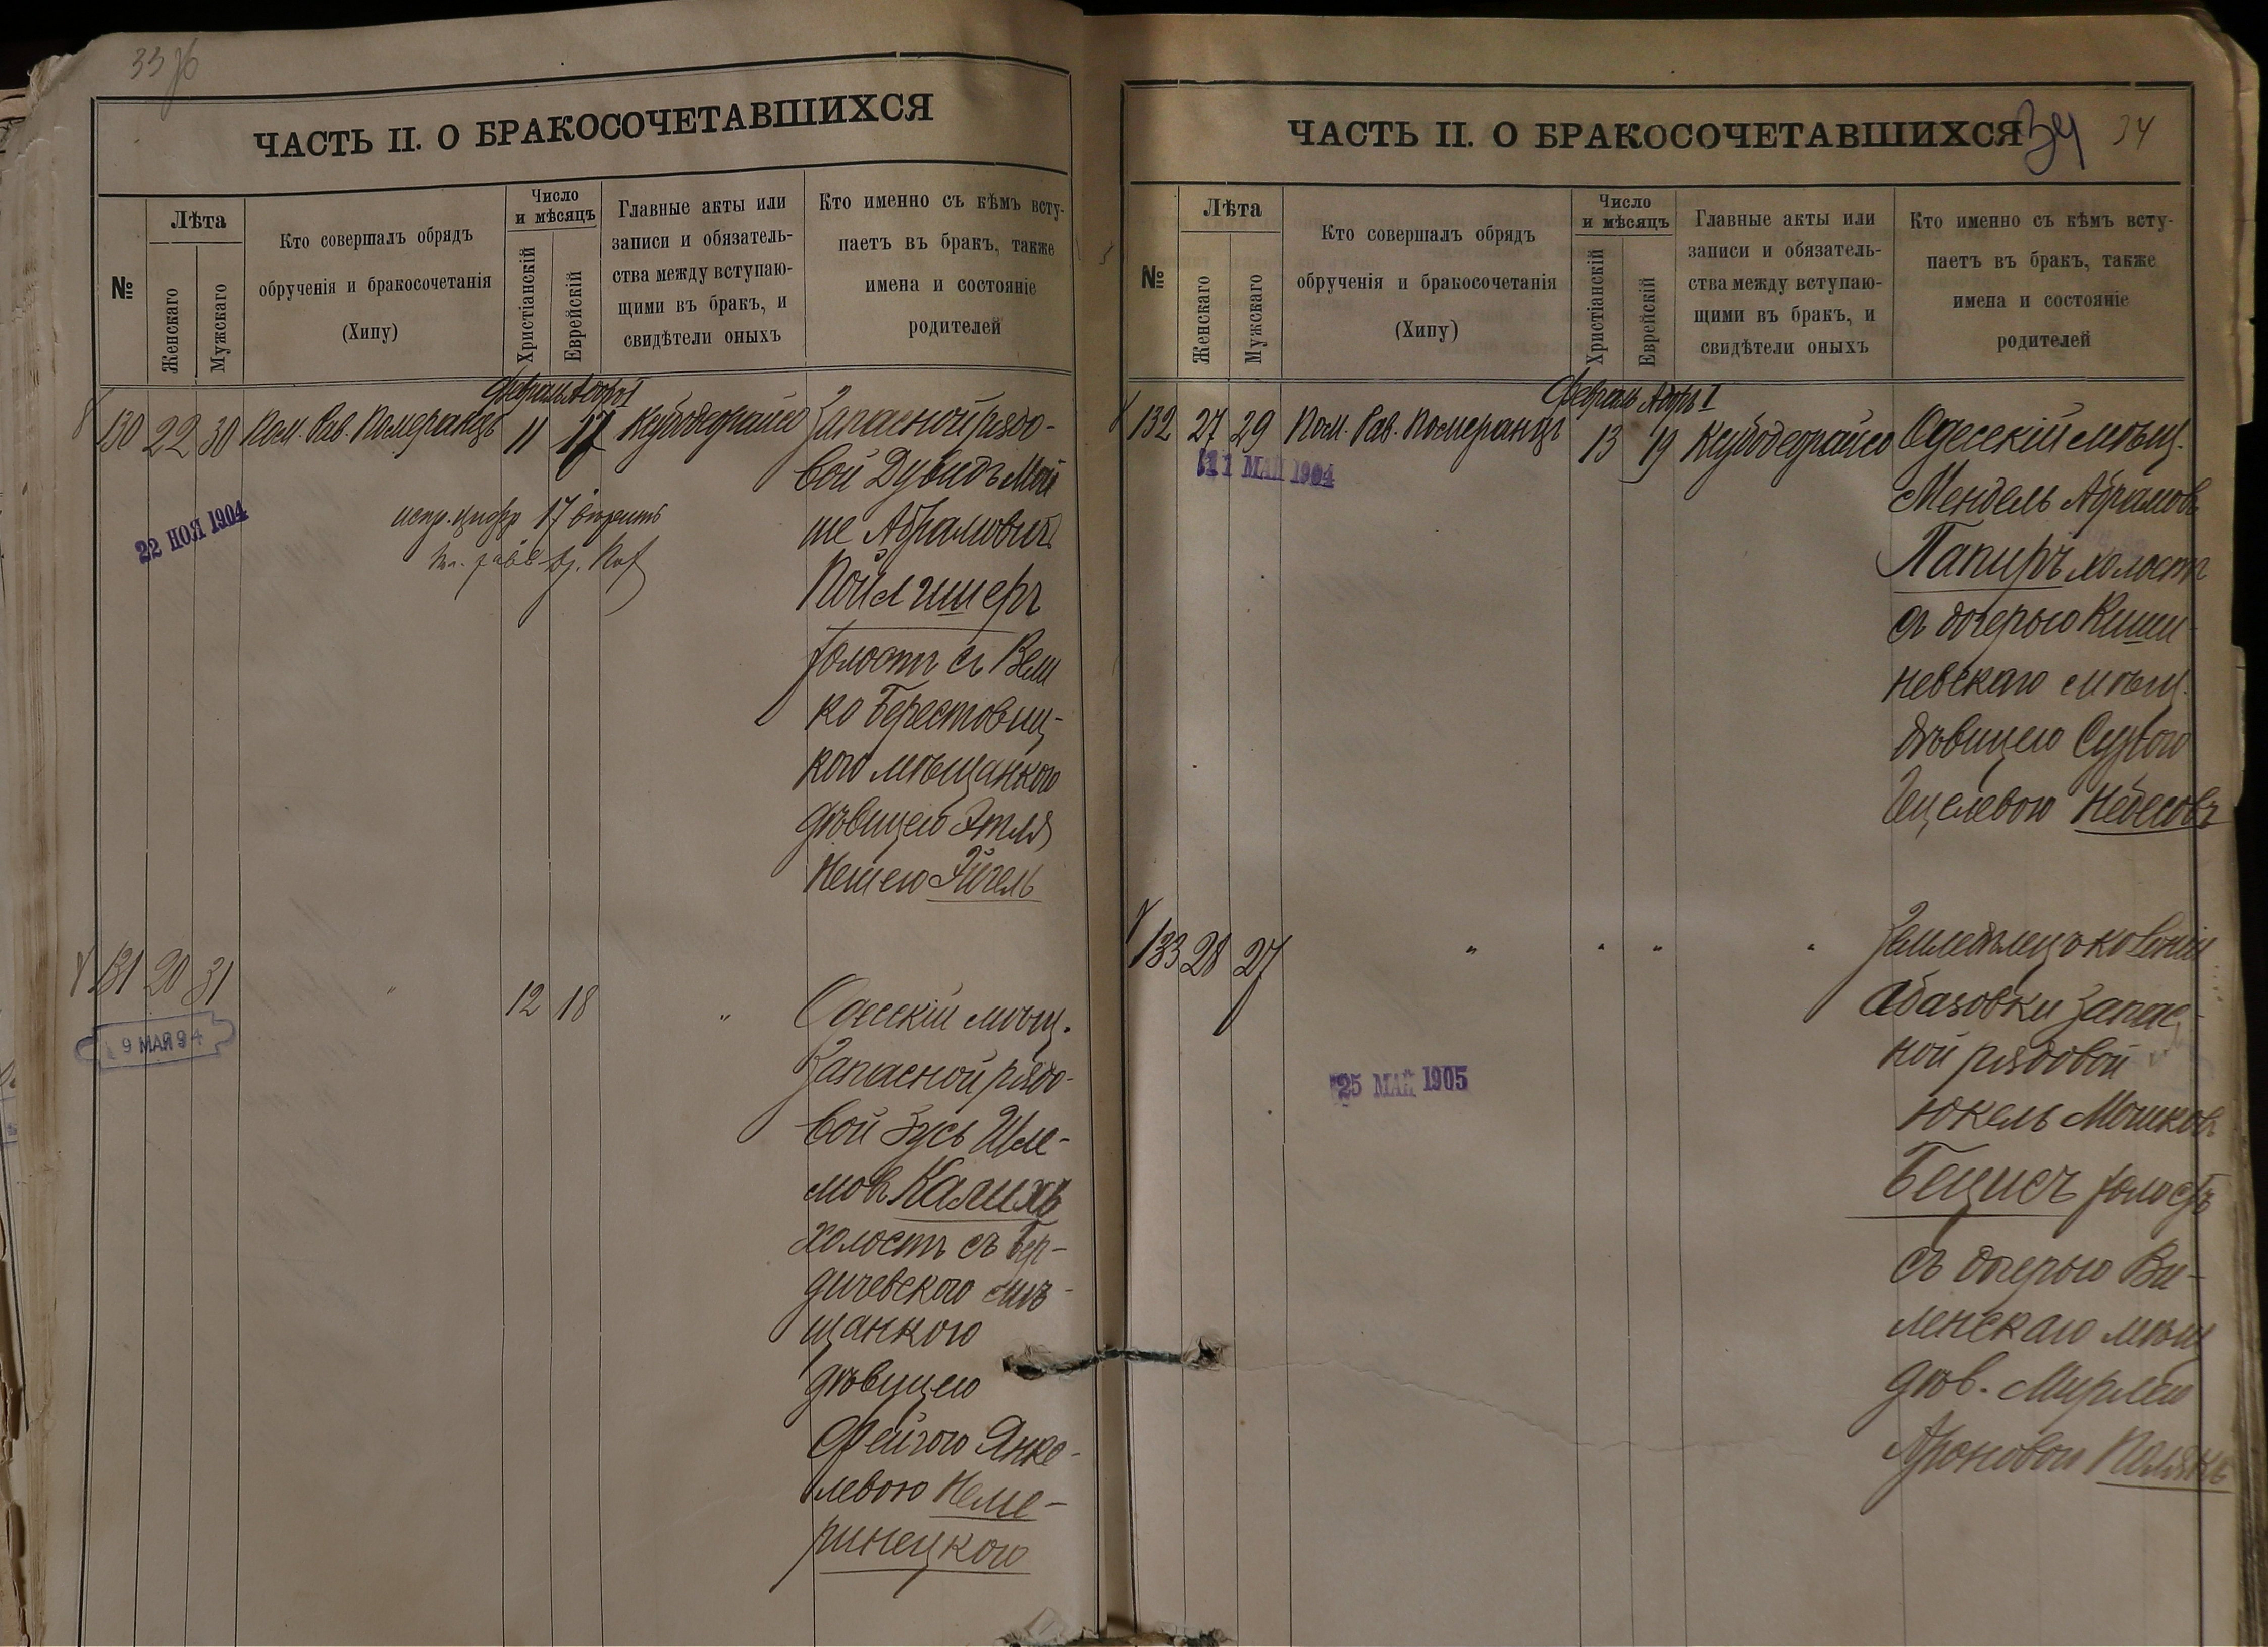 33
ЧАСТЬ II. О БРАКОСОЧЕТАВШИХСЯ
№
Лѣта
Женскаго
Мужскаго
Кто совершалъ обрядъ
обрученія и бракосочетанія
(Хипу)
Число
и мѣсяцъ
Христіанскій
Еврейскій
Главные акты или
записи и обязатель-
ства между вступаю-
щими въ бракъ, и
свидѣтели оныхъ
Кто именно съ кѣмъ всту-
паетъ въ бракъ, также
имена и состояніе
родителей
Февраль Адаръ I
130 22 30 Пом. Рав. Померанцъ 11 17 Ксубодеорайсо Запасной рядо-
вой Дувидъ Мой
ше Абрамовичъ
Пойлишеръ
холостъ съ Вели
ко Берестовиц-
кою мѣщанкою
дѣвицею Этля
Нешею Эйгель
22 НОЯ 1904
испр. цифр 17 вѣрить
131 20 31 " 12 18 " Одесскій мѣщ.
Запасной рядо-
вой Зусь Шле-
мовъ Калихъ
холостъ съ Бер-
дичевскою мѣ-
щанкою
дѣвицею
Фейгою Янке-
левою Неме-
ринецкою
9 МАЯ 94
34 34
ЧАСТЬ II. О БРАКОСОЧЕТАВШИХСЯ
№
Лѣта
Женскаго
Мужскаго
Кто совершалъ обрядъ
обрученія и бракосочетанія
(Хипу)
Число
и мѣсяцъ
Христіанскій
Еврейскій
Главные акты или
записи и обязатель-
ства между вступаю-
щими въ бракъ, и
свидѣтели оныхъ
Кто именно съ кѣмъ всту-
паетъ въ бракъ, также
имена и состояніе
родителей
Февраль Адаръ I
132 27 29 Пом. Рав. Померанцъ 13 19 Ксубодеорайсо Одесскій мѣщ.
Мендель Абрамовъ
Папиръ холостъ
съ дочерью Киши-
невскаго мѣщ.
дѣвицею Сурою
Гецелевою Небесовъ
11 МАЙ 1904
133 28 27 " " " " Земледѣлецъ колоніи
Абазовки запас-
ной рядовой
Юкель Мошковъ
Бецисъ холостъ
съ дочерью Ви-
ленскаго мѣщ
дѣв. Мирлею
Ароновою Полякъ
25 МАЙ 1905